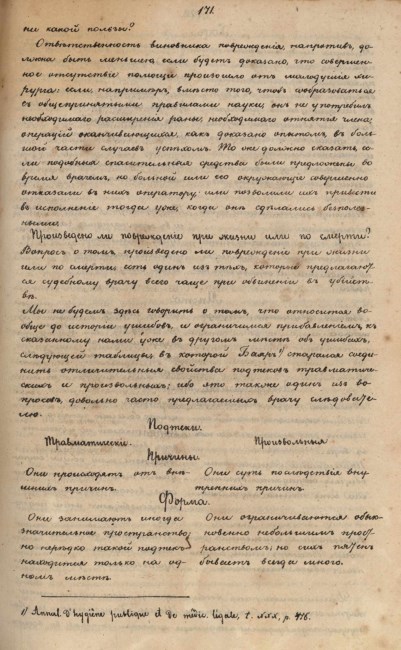 171.
ни какой пользы?
Отвѣтственность виновника поврежденія, напротив, до-
лжна быть меньшею если будетъ доказано, что совершен-
ное отсутствіе помощи произошло отъ малодушія хи-
рурга: если, напримѣръ, вмѣсто того, чтобъ сообразоваться
съ общепринятыми правилами науки, онъ не употребилъ
необходимаго расширенія раны, необходимаго отнятія члена;
операцій оканчивающихся, какъ доказано опытомъ, въ боль-
шой части случаевъ успѣхомъ. То же должно сказать, ес-
ли подобныя спасительныя средства были предложены во
время врачемъ, но больной или его окружающіе совершенно
отказали въ нихъ оператору, или позволили ихъ привести
въ исполненіе тогда уже, когда онѣ сдѣлались безполез-
ными.
Произведено ли поврежденіе при жизни или по смерти?
Вопросъ о томъ, произведено ли поврежденіе при жизни
или по смерти есть одинъ изъ тѣхъ, которые предлагают-
ся судебному врачу всего чаще при обвиненіи въ убійст-
вѣ.
Мы не будемъ здѣсь говорить о томъ, что относится во-
обще до исторіи ушибовъ, и ограничимся прибавленіемъ, къ
сказанному нами уже въ другомъ мѣстѣ объ ушибахъ,
слѣдующей таблицы, въ которой Баяръ 1) старался соеди-
нить отличительныя свойства подтековъ травматиче-
скихъ и произвольныхъ; ибо это также одинъ изъ во-
просовъ, довольно часто предлагаемыхъ врачу слѣдовате-
лю.
Подтеки.
Травматически. Произвольныя
Причины.
Они происходятъ отъ внѣ- Они суть послѣдствія вну-
шнихъ причинъ. треннихъ причинъ.
Форма.
Они занимаютъ иногда Они ограничиваются обык-
значительное пространство; новенно небольшимъ прост-
но нерѣдко такой подтекъ ранствомъ; но сихъ пятенъ
находится только на од- бываетъ всегда много.
номъ мѣстѣ.
1) Annal. d'hygiène publique et de médic. légale, t. XXX, p. 416.